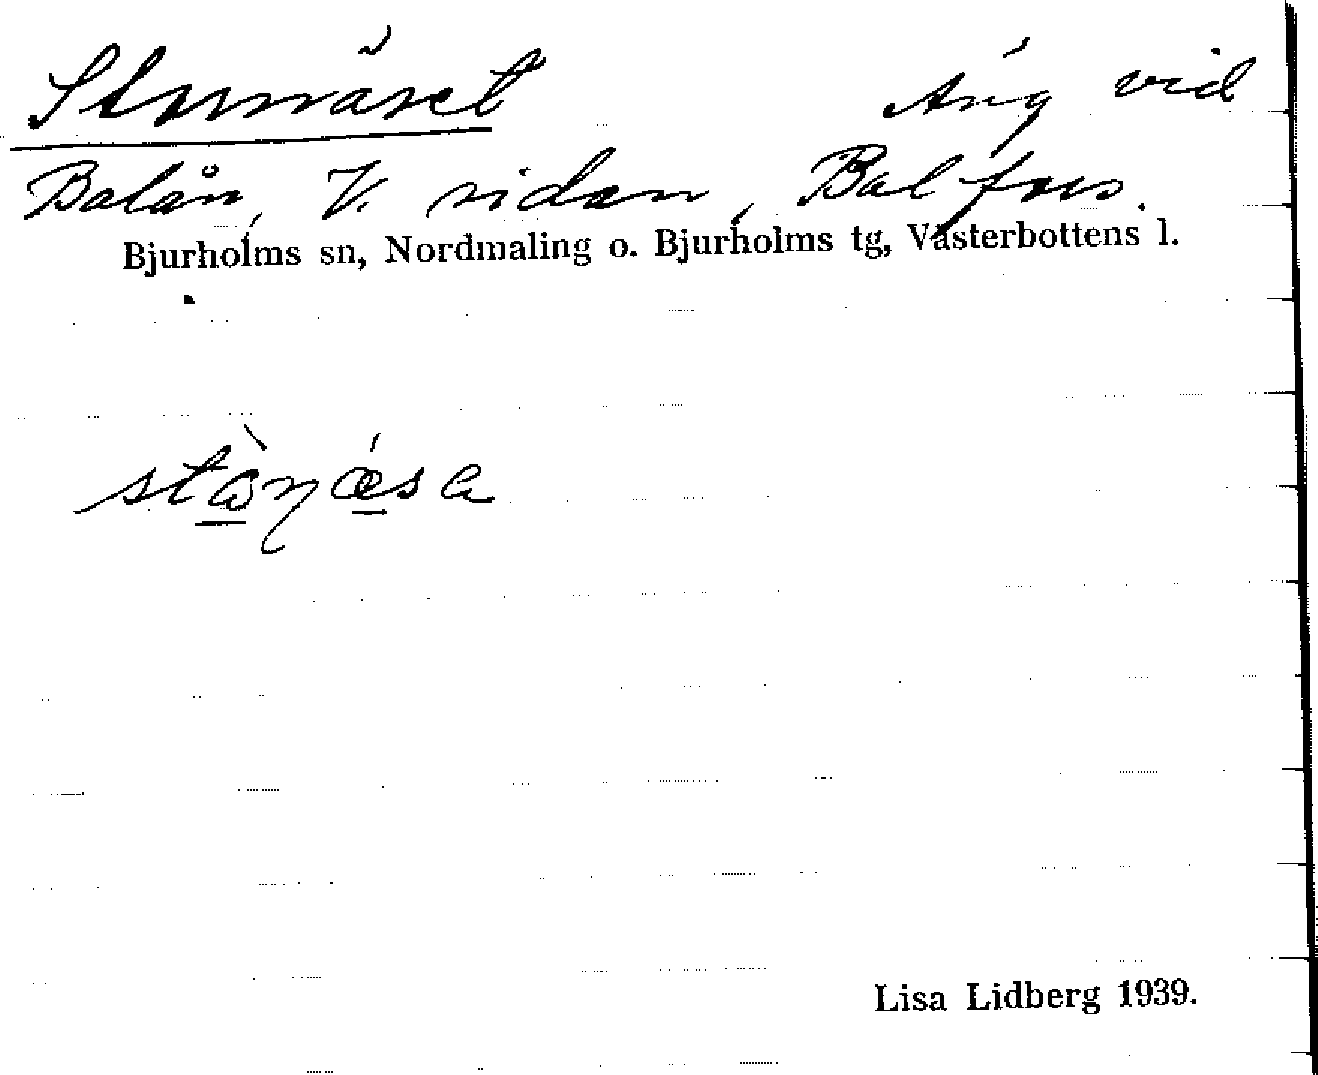 Stornäset Äng vid
Balån, V. sidan, Balfors.
Bjurholms sn, Nordmaling o. Bjurholms tg, Västerbottens l.
Lisa Lidberg 1939.